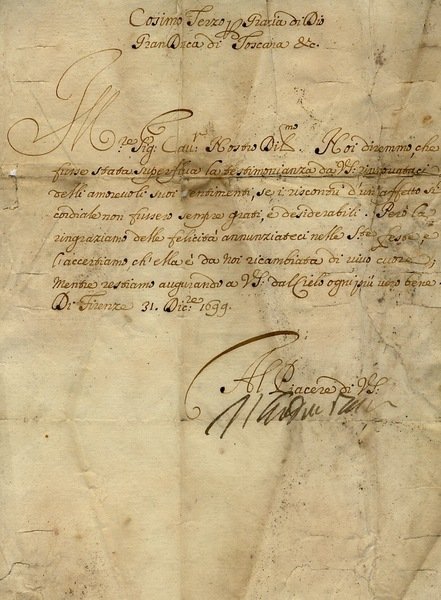 Cosimo Terzo p Grazia di Dio
Gran Duca di Toscana &c.
Ill.re Sig.r Cav.r Nostro Dil.mo Noi diremmo, che
fusse stata superflua la testimonianza da VS. rinnovataci
delli amorevoli suoi sentimenti, se i riscontri d'un affetto sì
cordiale non fussero sempre grati, e desiderabili. Però la
ringraziamo delle felicità annunziateci nelle S.te Feste, e
l'accertiamo ch'ella è da noi ricambiata di vivo cuore,
Mentre restiamo augurando a VS. dal Cielo ogni più vero bene.
Di Firenze 31. Dic.re 1699.
Al Piacere di VS.